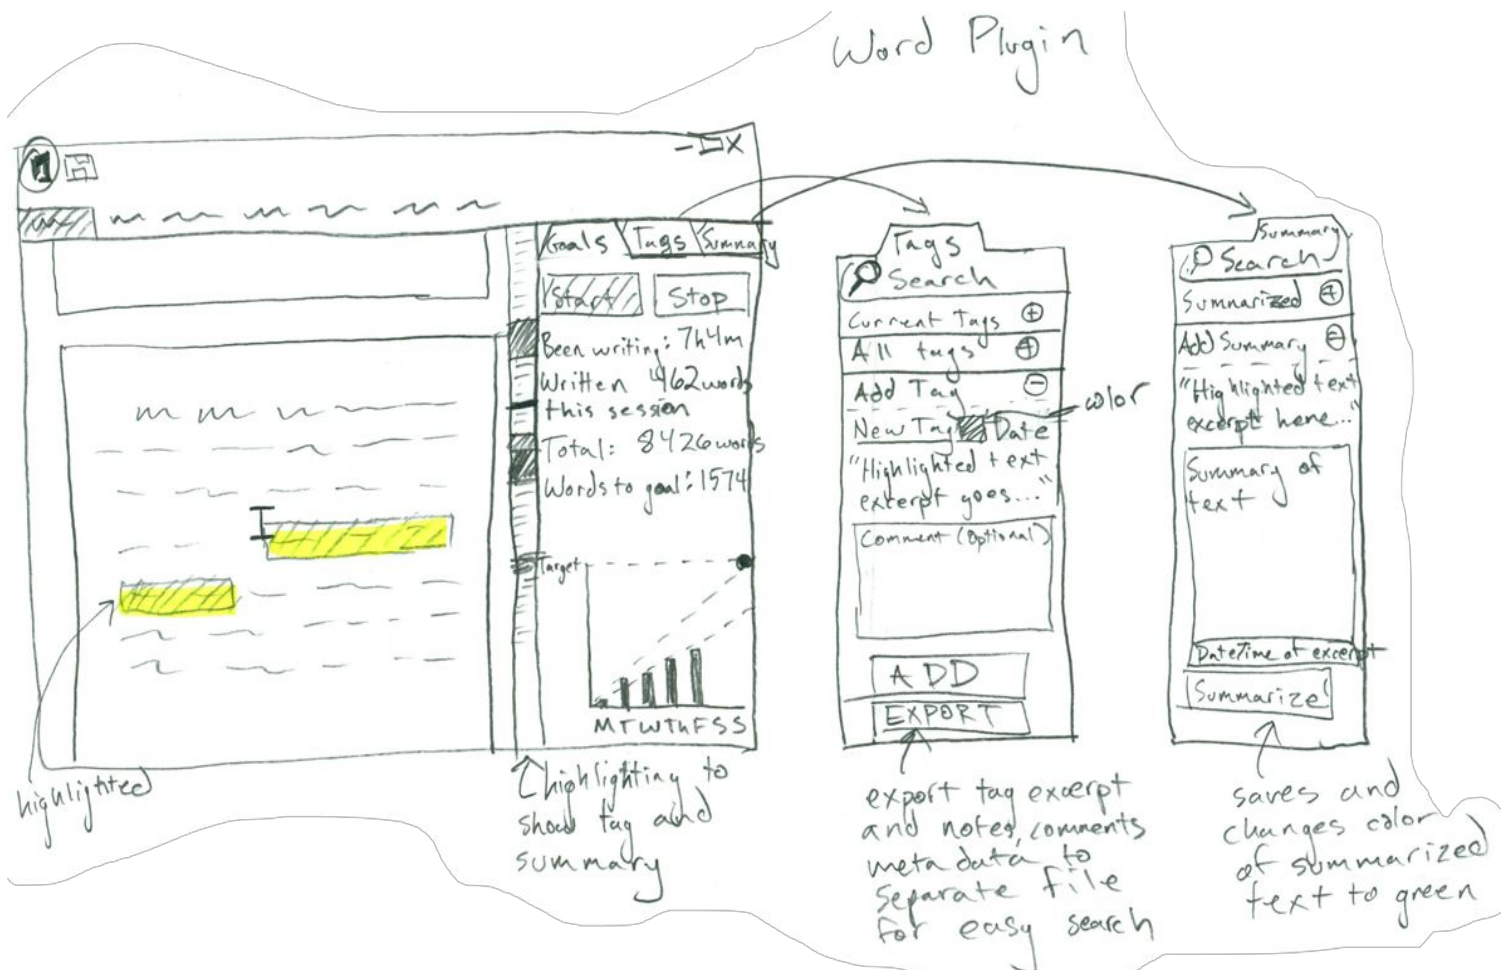 Word Plugin
Goals
Tags
Summary
Start
Stop
Been writing: 7h4m
Written 462 words
this session
Total: 8426 words
Words to goal: 1574
Target
M T W Th F S S
highlighted
highlighting to
show tag and
summary
Tags
Search
Current Tags
All tags
Add Tag
color
New Tag Date
"Highlighted text
excerpt goes..."
Comment (Optional)
ADD
EXPORT
export tag excerpt
and notes, comments
meta data, to
separate file
for easy search
Summary
Search
Summarized
Add Summary
"Highlighted text
excerpt here..."
Summary of
text
Date/Time of excerpt
Summarize
saves and
changes color
of summarized
text to green